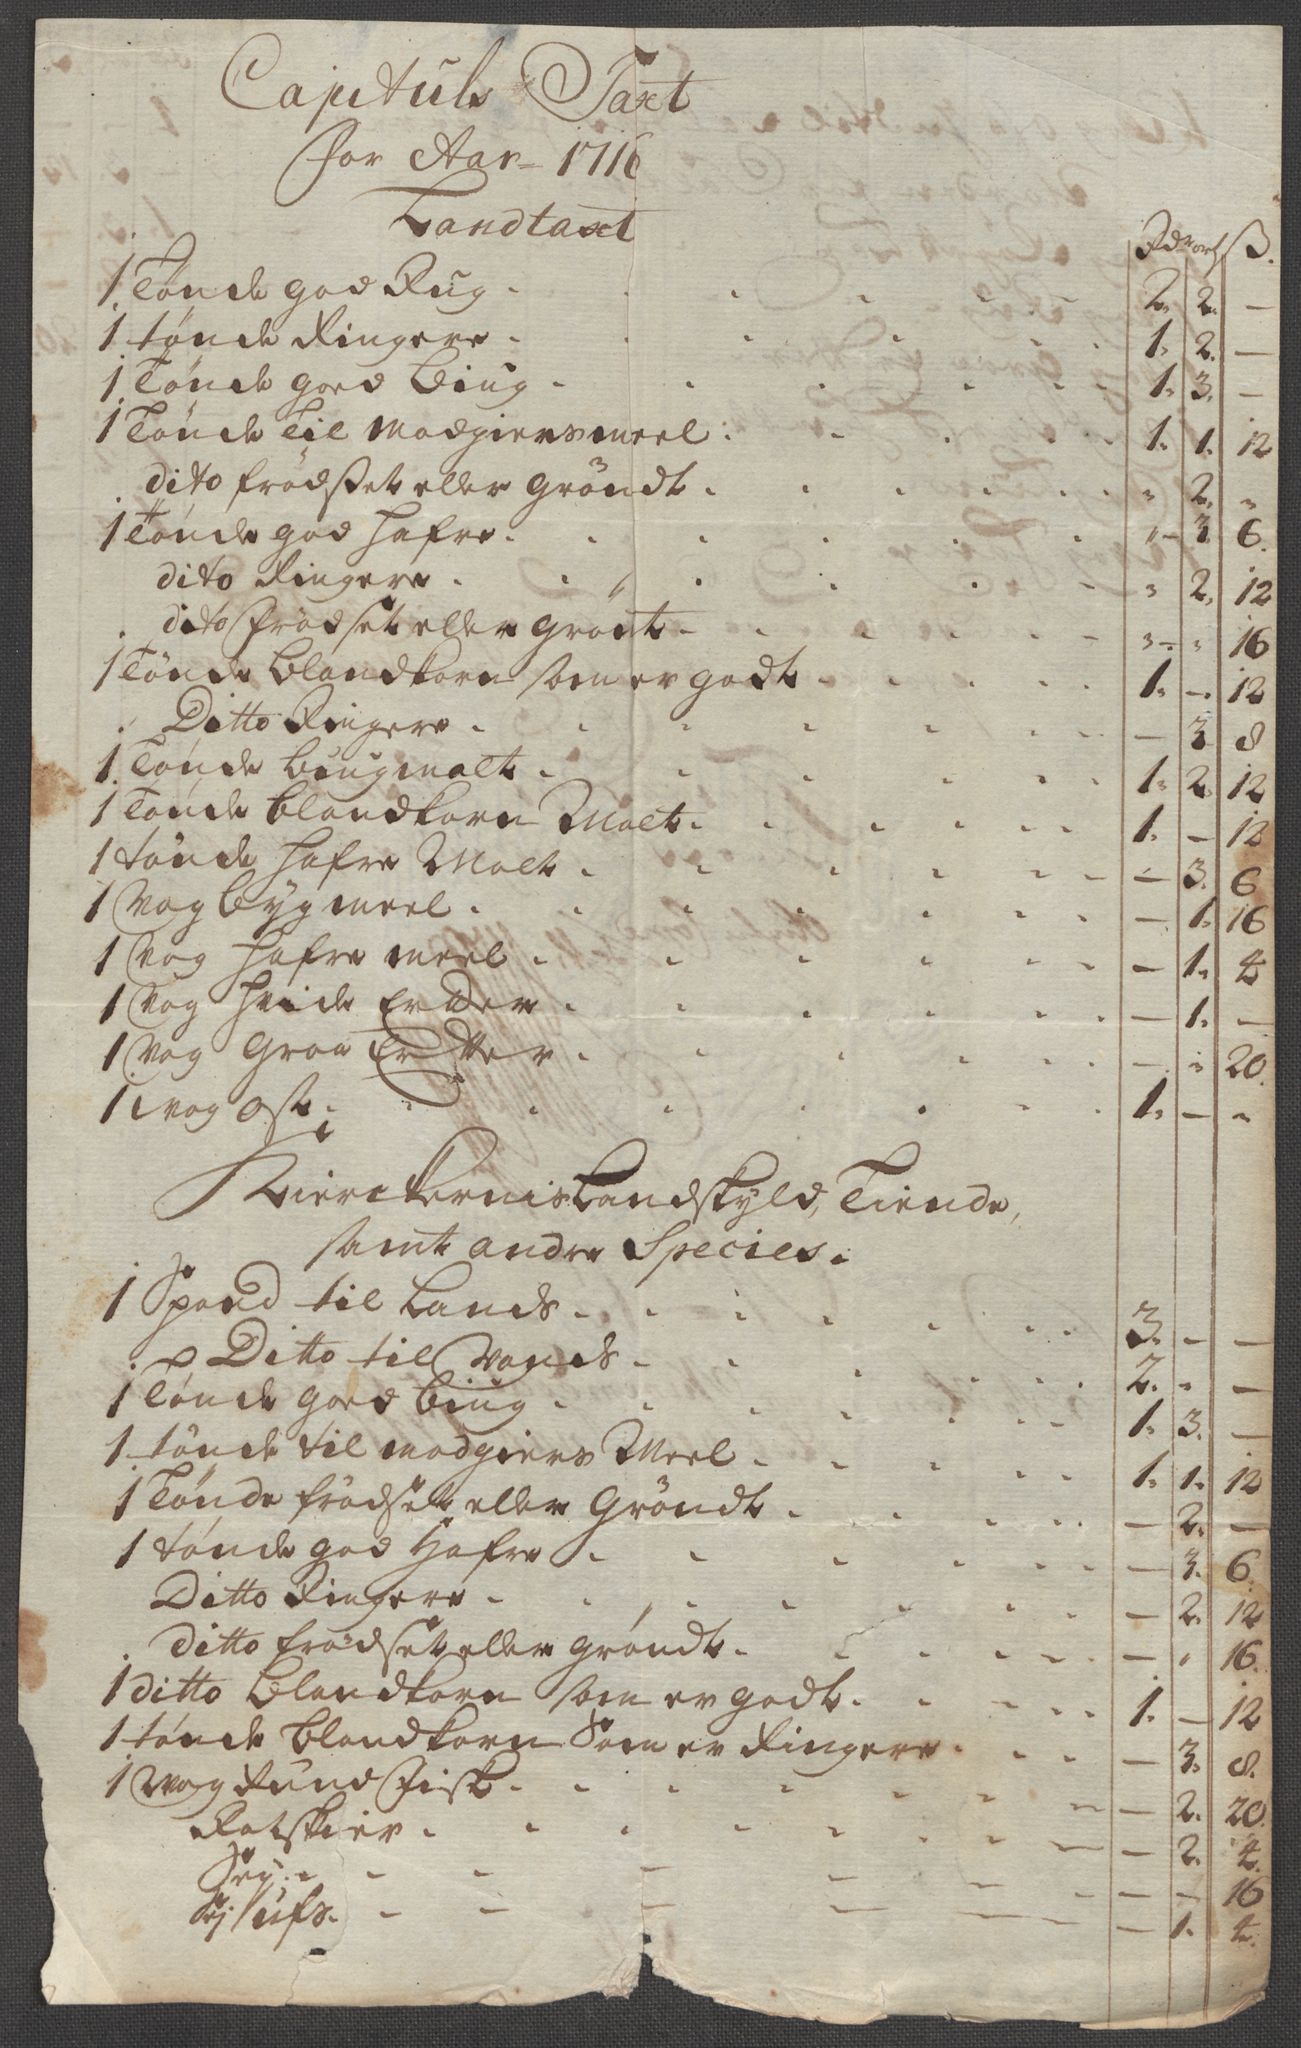 Capituls Taxt
for Aar 1716
Landtaxt
Rd mark ß.
1 Tønde god Rug . 2. 2. —
1 tønde Ringere . 1. 2. —
1 Tønde goed Biug . 1. 3. —
1 Tønde Til Madgiersmeel . 1. 1. 12
dito frødset eller Grøndt . " 2. "
1 Tønde god Hafre . " 3. 6.
dito Ringere . " 2. 12
dito frødset eller Grønt . " " 16
1 Tønde Blandkorn som er godt . 1. — 12
Ditto Ringere . — 3 8
1 Tønde Biugmalt . 1. 2. 12
1 Tønde Blandkorn Malt . 1. — 12
1 tønde Hafre Malt . — 3. 6
1 Vog Bygmeel . — 1. 16
1 Vog Hafre meel . — 1. 4
1 Vog Hvide Erder . — 1. —
1 Vog Graa Ertter . — " 20.
1 Vog Ost . 1. — "
Kierckernis Landskyld, Tiende,
samt andre Species.
1 Spand til Lands . 3. — —
Ditto til Vands . 2. " —
1 Tønde goed Biug . 1. 3. —
1 tønde til madgiers Meel . 1. 1. 12
1 Tønde frødset eller Grøndt . — 2. —
1 tønde god Hafre . — 3. 6.
Ditto Ringere . — 2. 12
Ditto frødset eller grøndt . — " 16.
1 ditto Blandkorn som er godt . 1. — 12
1 tønde Blandkorn Som er Ringere . — 3. 8.
1 Vog Rund Fisk . — 2. 20.
Rotskier . — 2. 4.
Sey . — — 16
Sej Ufs . — 1. 4.